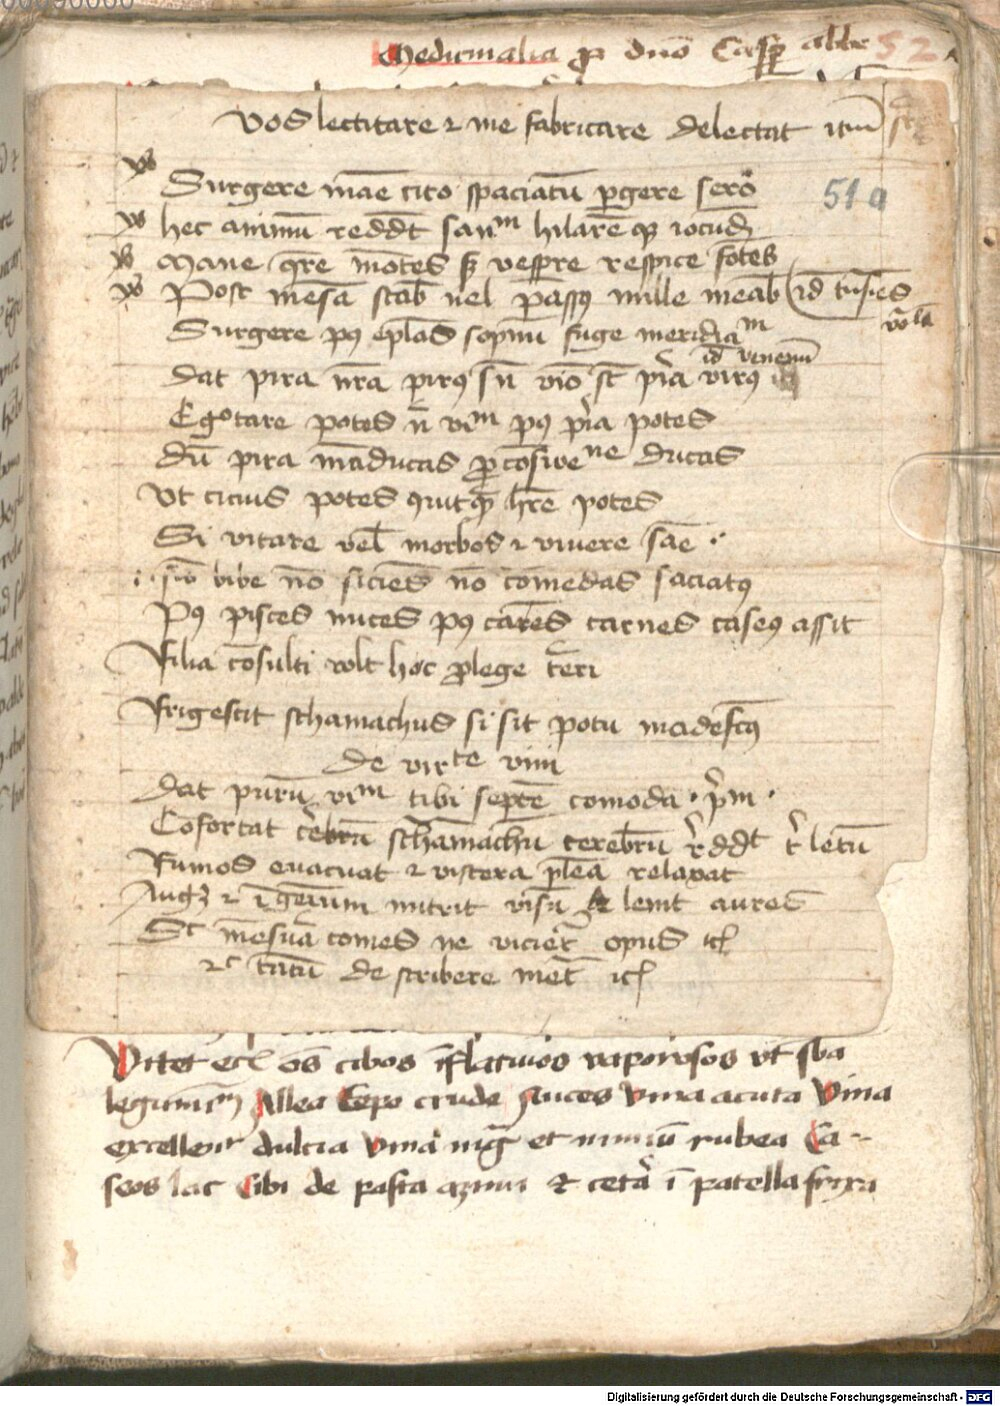 Medicinalia p dno Casp abbe 52
Vos lectitare & me fabricare delectat itm
51a
vs Surgere mae cito spaciatu pgere sero
vs hec animu reddt san^m hilare qz iocud
vs Mane qre motes sz vespere respice fotes
vs Post mesa stab vel passus mille meab id transies
Surgere p9 eplas sopnu fuge meridia^m
id venenu
Dat pira nra pirus sn vio st pira virus
Egrotare potes n vi^m p9 pira potes
Du pira maducas p cosive^ne ducas
Ut cicius potes quitqz hre potes
Si vitare vel morbos & vivere sae
sic bibe no sicies no comedas saciatus
P9 pisces nuces p9 carnes carnes caseus assit
Filia consulti volt hoc plege teri
Frigescit schamachus si sit potu madefcus
De virte vini
Dat puru vi^m tibi septe comoda pm
Cofortat cerebru schamachu cerebru rddt letu
Fumos evacuat & viscera plea relaxat
Augz & igeium nutrit visu & lenit aures
St mesua comes ne vicier opus icl
tatu de scribere met icl
Vitet ecl os cibos iflativos vaporosos vt sba
leguminu Allea Cepo crude Nuces vina acuta Vina
excellent dulcia vina nig et nimiu rubea Ca-
seos lac Cibi de pasta azimi & ceta i patella frixa
Digitalisierung gefördert durch die Deutsche Forschungsgemeinschaft - DFG